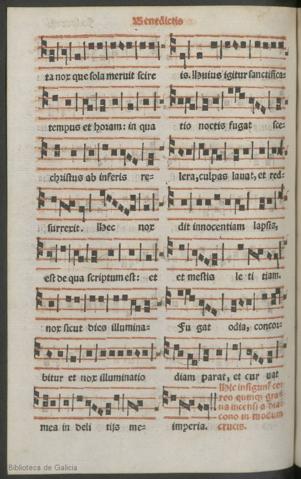 Benedictio
ta nox que sola meruit scire
tempus et horam: in qua
christus ab inferis re-
surrexit. Hec nox
est de qua scriptum est: et
nox sicut dies illumina-
bitur et nox illuminatio
mea in deli tijs me-
is. Huius igitur sanctifica-
tio noctis fugat sce-
lera, culpas lauat, et red-
dit innocentiam lapsis,
et mestis le ti tiam.
Fu gat odia, concor-
diam parat, et cur uat
imperia.
Hic insigunt cer
reo quinqz gra
na incensi a dia
cono in modum
crucis.
Biblioteca de Galicia